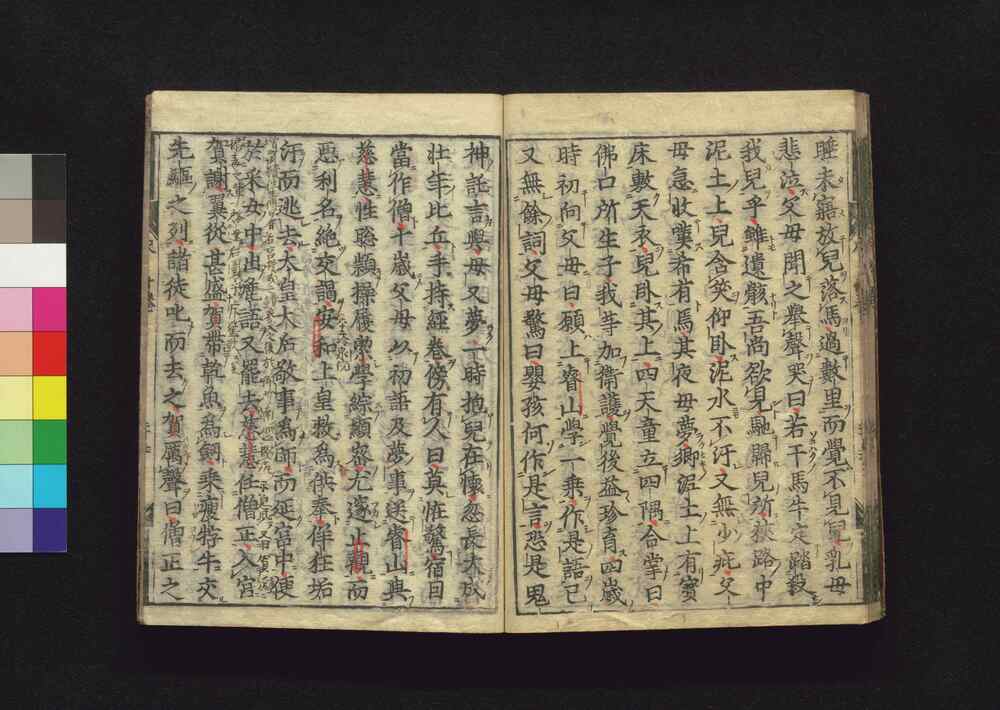 睡未寤放兒落馬過數里而覺不見兒乳母
悲泣父母聞之舉聲哭曰若干馬牛定踏殺
我兒乎雖遺骸吾尚欲見馳歸見所狹路中
泥土上兒含笑仰臥泥水不汙又無少疵父
母急收嘆希有焉其夜母夢卿泥土上有寶
床敷天衣兒臥其上四天童立四隅合掌曰
佛口所生子我等加衛護覺後益珍育四歲
時初向父母曰願上睿山學一乘作是語已
又無餘詞父母驚曰嬰孩何作是言恐是鬼
神託言與母又夢一時抱兒在懷忽長大成
壯年比丘手持經卷傍有人曰莫怪驚宿因
當作僧十歲父母以初語及夢事送睿山典
慈惠性聰顯操履潔學綜顯密尤邃止觀而
惡利名絕交謁安和上皇救為供奉佯狂垢
汙而逃去太皇大后敬事為師而延宮中便
於采女中出俚語又罷去慈惠任僧正入宮
賀謝翼從甚盛賀帶乾魚為劔乘瘦牸牛交
先驅之列諸徒叱而去之賀厲聲曰僧正之